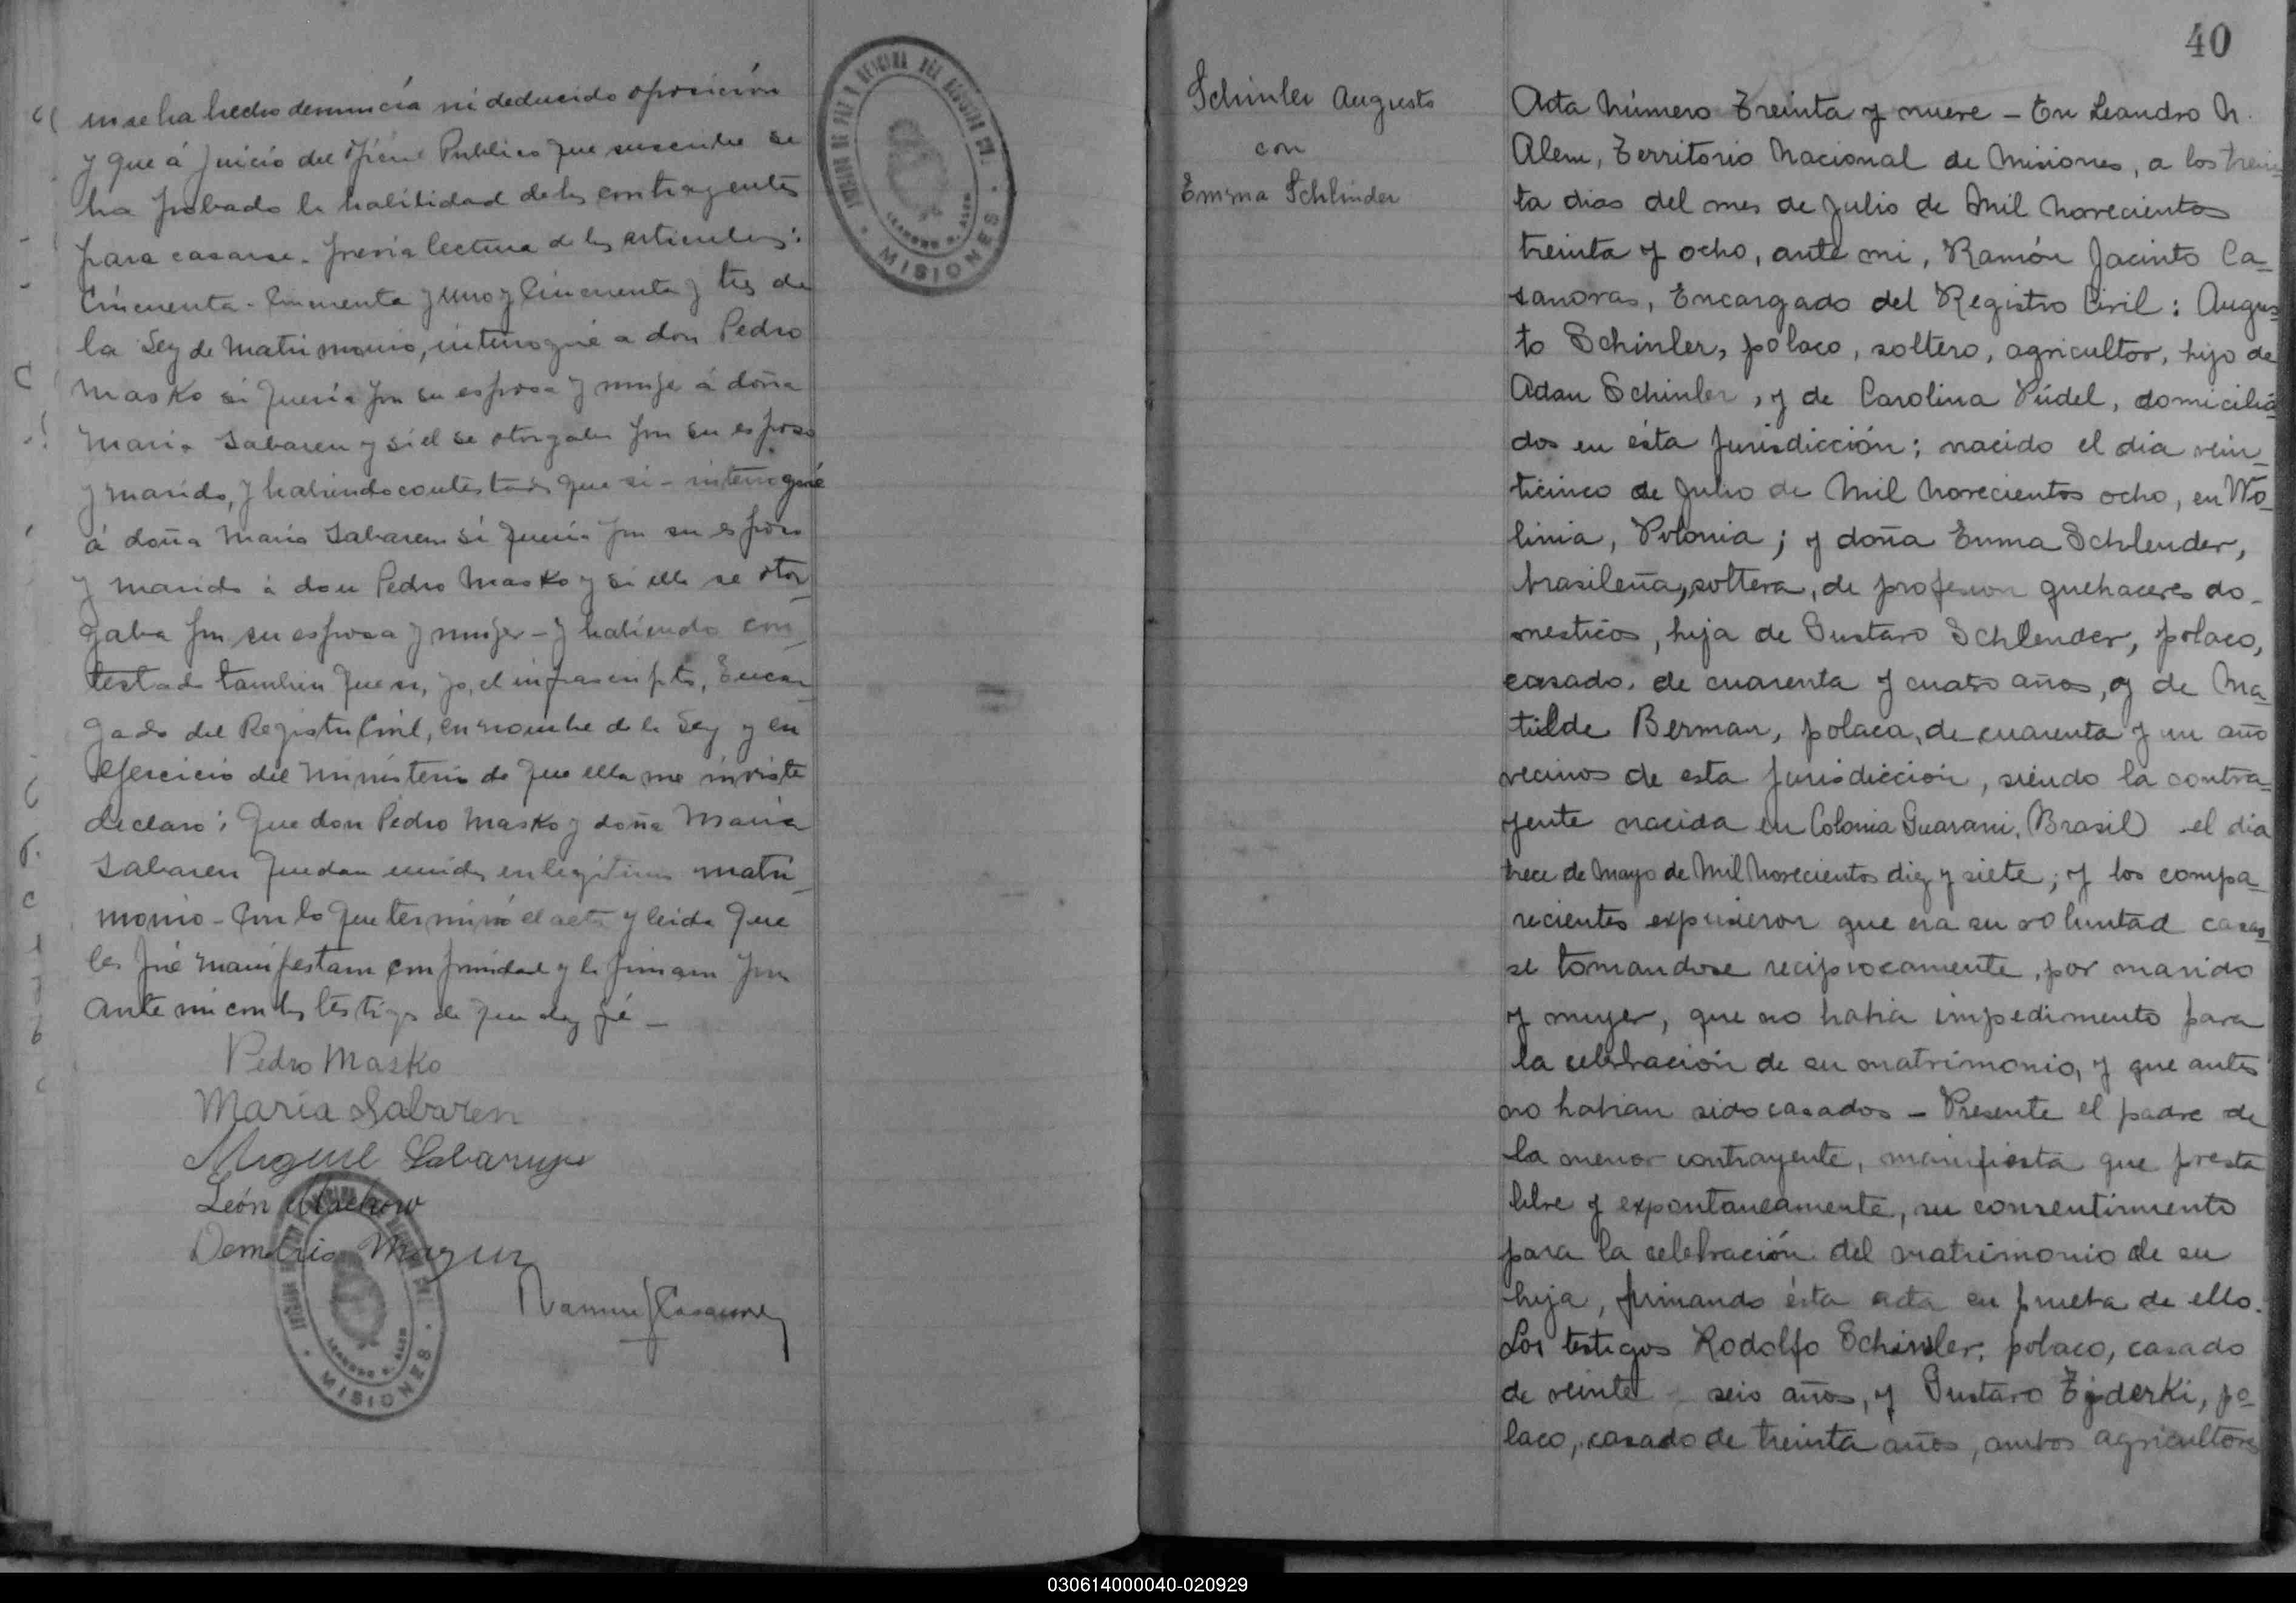 no se ha hecho denuncia ni deducido oposición
y que á juicio del Público que suscribe se
ha probado la habilidad de los contrayentes
para casarse. previa lectura de los articulos:
Cincuenta - Cincuenta y uno y Cincuenta y tres de
la Ley de Matrimonio, interrogué a don Pedro
Masko si queria por su esposa y mujer á doña
Maria Sabaren y si él se otorgaba por su esposo
y marido, y habiendo contestado que si - interrogué
á doña Maria Sabaren si queria por su esposo
y marido á don Pedro Masko y si ella se otor_
gaba por su esposa y mujer - y habiendo con_
testado tambien que si, yo, el infrascripto, Encar_
gado del Registro Civil, en nombre de la Ley y en
ejercicio del ministerio de que ella me inviste
declaro: Que don Pedro Masko y doña Maria
Sabaren quedan unidos en legitimo matri_
monio - Con lo que terminó el acta y leida que
les fué manifestaron conformidad y la firman por
ante mi con los testigos de que doy fé _
Pedro Masko
Maria Sabaren
Miguel
León
Demetrio Mazur
MISIONES
MISIONES
40
Schinler Augusto
con
Emma Schlinder
Acta Número Treinta y nueve - En Leandro N.
Alem, Territorio Nacional de Misiones, a los trein
ta dias del mes de Julio de Mil Novecientos
treinta y ocho, ante mi, Ramón Jacinto Ca_
sanovas, Encargado del Registro Civil: Augus_
to Schinler, polaco, soltero, agricultor, hijo de
Adan Schinler, y de Carolina Púdel, domicilia_
dos en ésta Jurisdicción; nacido el dia vein_
ticinco de Julio de Mil Novecientos ocho, en Wo_
linia, Polonia; y doña Emma Schlender,
brasileña, soltera, de profesion quehaceres do_
mesticos, hija de Gustavo Schlender, polaco,
casado, de cuarenta y cuatro años, y de Ma_
tilde Berman, polaca, de cuarenta y un año
vecinos de esta Jurisdicción, siendo la contra_
yente nacida en Colonia Guarani, (Brasil) el dia
trece de Mayo de Mil Novecientos diez y siete; y los compa_
recientes expusieron que era su voluntad casar_
se tomandose reciprocamente, por marido
y mujer, que no habia impedimento para
la celebración de su matrimonio, y que antes
no habian sido casados - Presente el padre de
la menor contrayente, manifiesta que presta
libre y expontaneamente, su consentimiento
para la celebración del matrimonio de su
hija, firmando ésta acta en prueba de ello.
Los testigos Rodolfo Schinler, polaco, casado
de veinte seis años, y Gustavo po_
laco, casado de treinta años, ambos agricultores
030614000040-020929